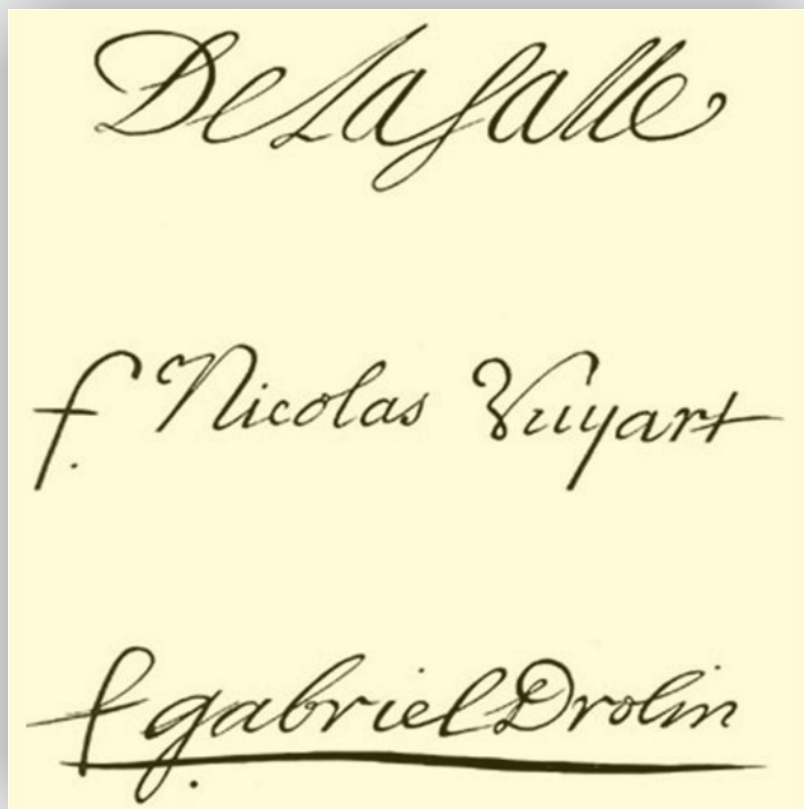 De La Salle
f. Nicolas Vuyart
f. gabriel Drolin